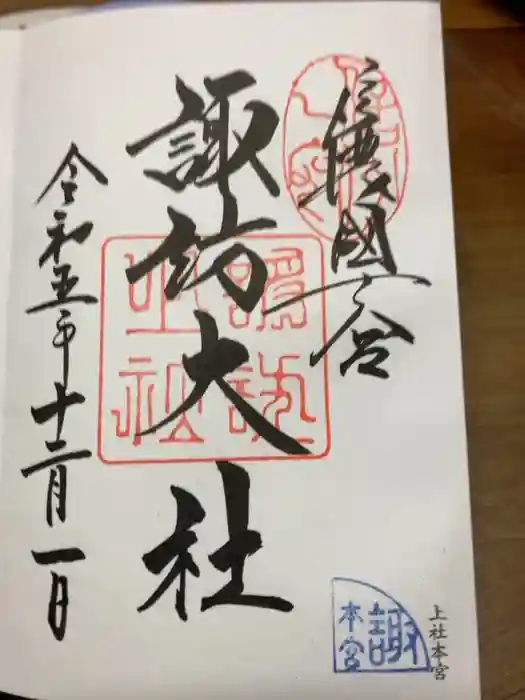 信濃國一之宮
諏訪大社
令和五年十二月一日
諏
本宮
上社本宮